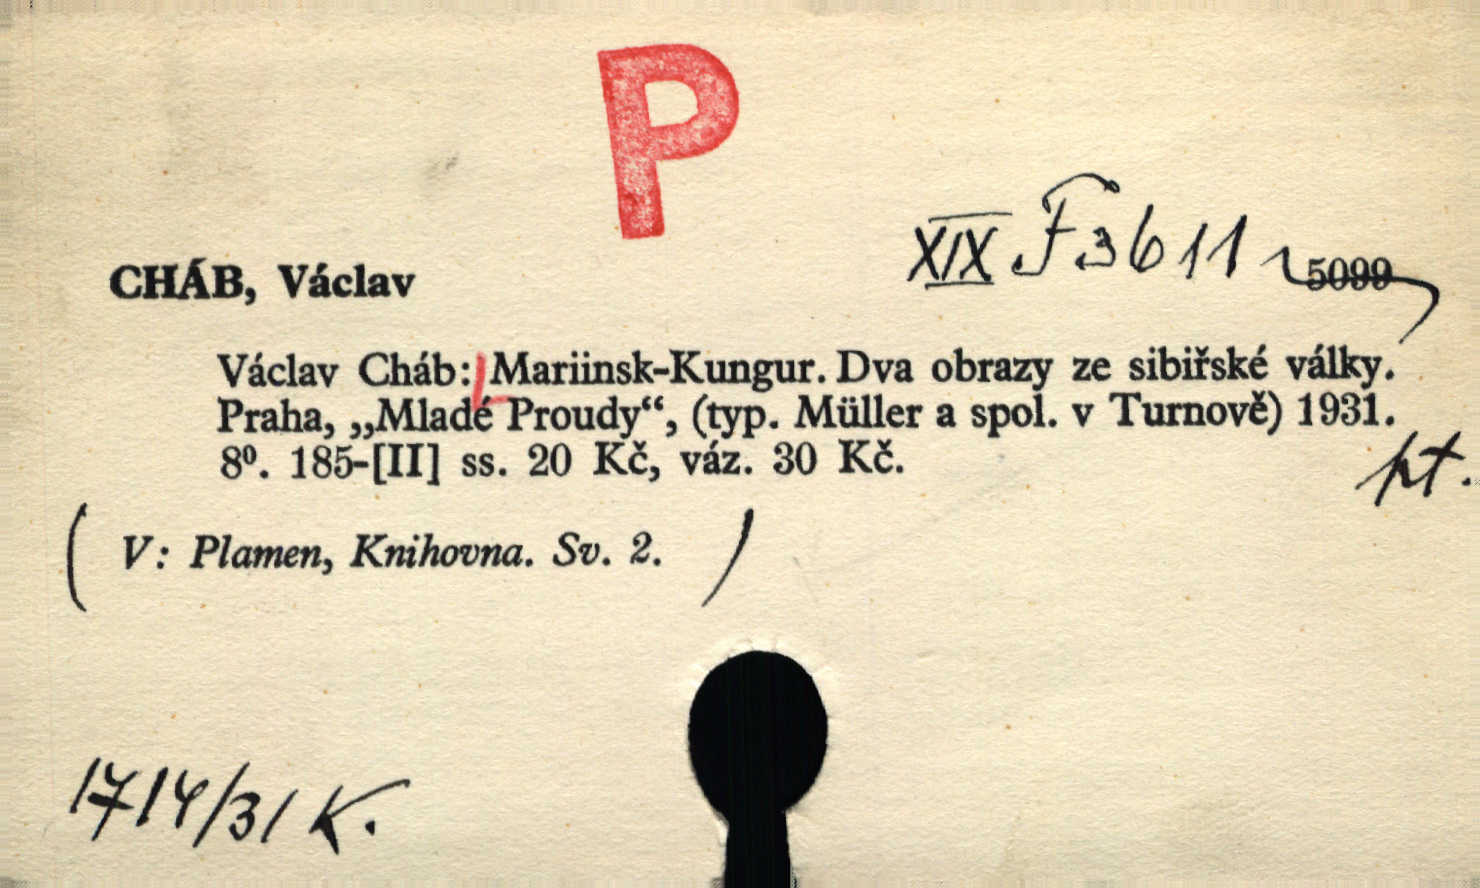 P
XIX F 3611
CHÁB, Václav 5099
Václav Cháb: Mariinsk-Kungur. Dva obrazy ze sibiřské války.
Praha, „Mladé Proudy“, (typ. Müller a spol. v Turnově) 1931.
8⁰. 185-[II] ss. 20 Kč, váz. 30 Kč.
pt.
( V: Plamen, Knihovna. Sv. 2. )
1714/31 K.